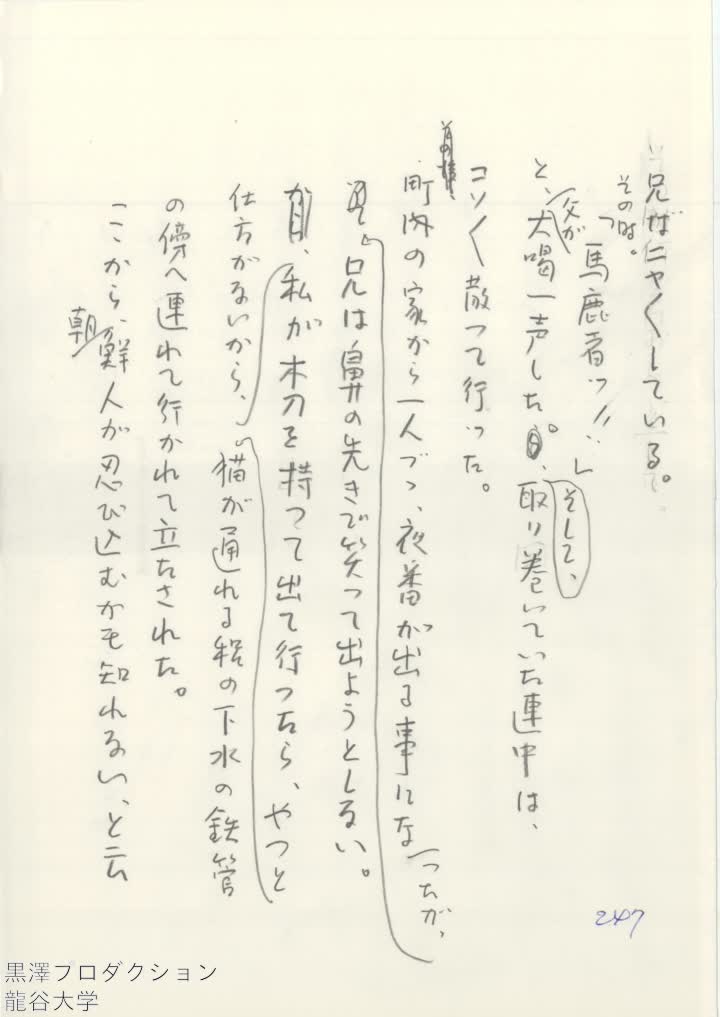 兄はニヤ〱している。
その時。
「馬鹿者ッ!!」
と、父が
大喝一声した。そして、取り巻いていた連中は、
コソ〱散って行った。
町内の家から一人づゝ、夜番が出る事になったが、
兄は鼻の先きで笑って出ようとしない。
私が木刀を持って出て行ったら、やっと
仕方がないから、猫が通れる程の下水の鉄管
の傍へ連れて行かれて立たされた。
ここから、朝鮮人が忍び込むかも知れない、と云
247
黒澤プロダクション
龍谷大学